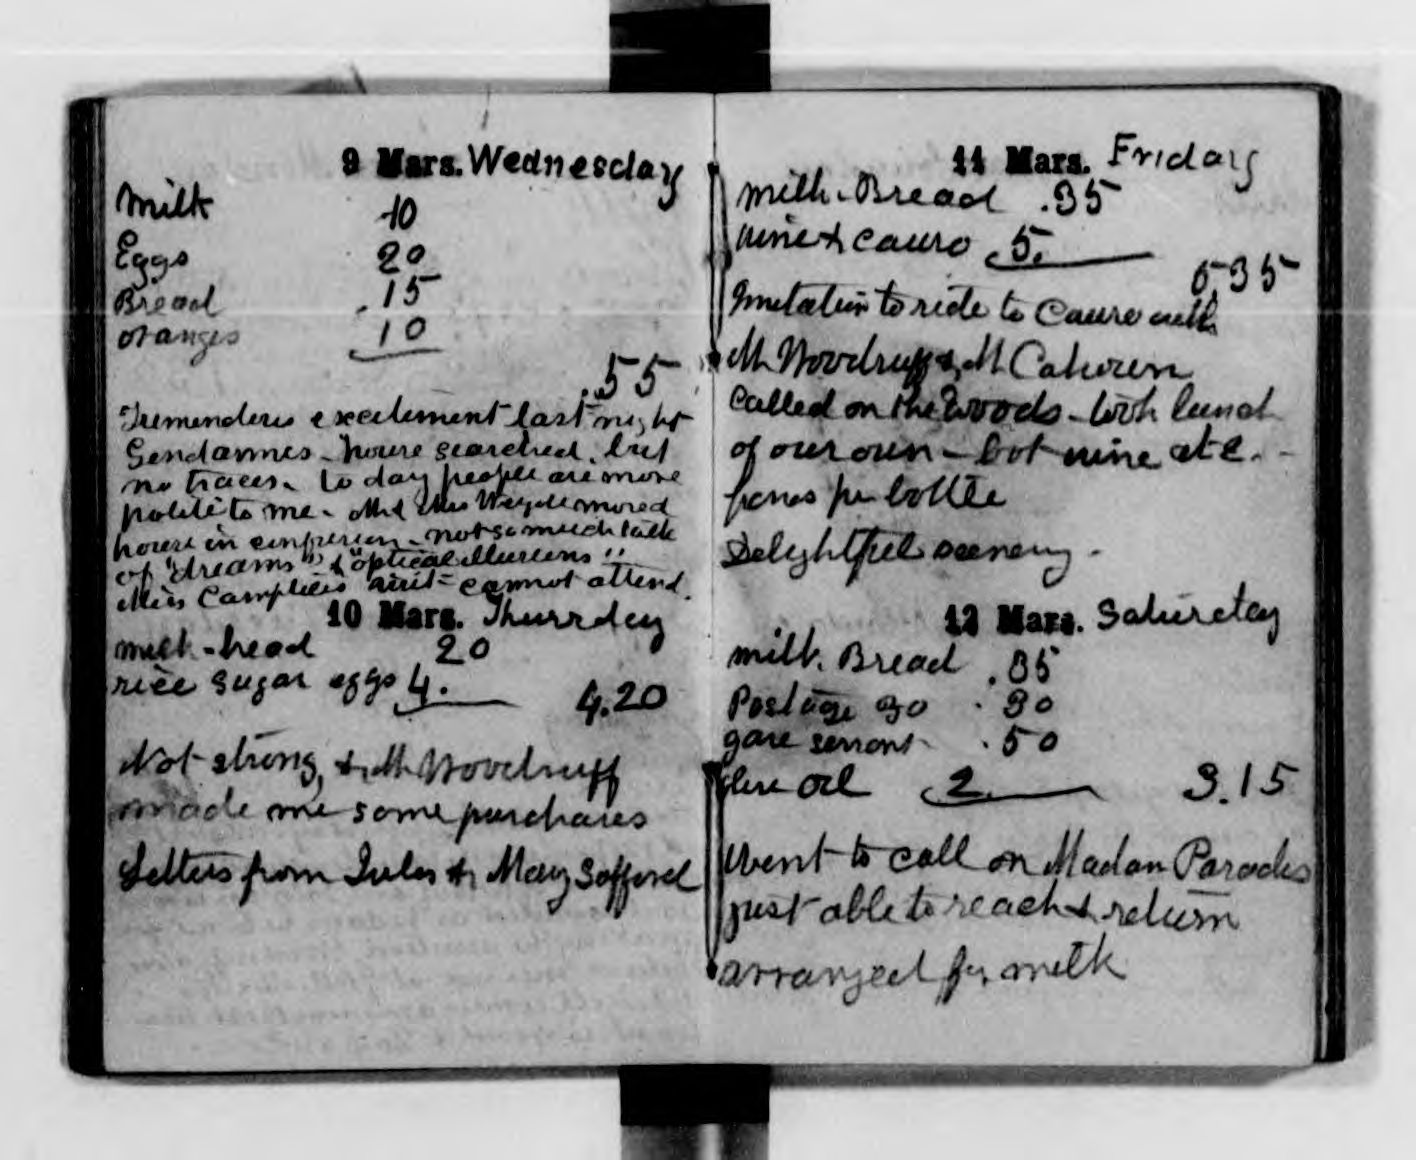 9 Mars. Wednesday
Milk 10
Eggs 20
Bread .15
oranges 10
.55
Tremendous excitement last night
Gendarmes - house searched, but
no traces. to day people are more
polite to me - Mr & Mrs moved
house in - not so much talk
of "dreams" & "optical illusions"!!
Miss Campbells cannot attend.
10 Mars. Thursday
milk - bread 20
rice sugar eggs 4.
4.20
Not strong, & Mr Woodruff
made me some purchases
Letters from Jules & Mary Safford
11 Mars. Friday
milk - Bread .35
wine & Cauro 5.
5.35
Invitation to ride to Cauro with
Mr Woodruff & Mr Cahoren
Called on the Woods - took lunch
of our own - bot wine at 2. -
francs per bottle
Delightful scenery -
12 Mars. Saturday
milk. Bread .35
Postage 30 .30
gave servant .50
oil 2.
3.15
Went to call on Madam Parodis
just able to reach & return
arranged for milk